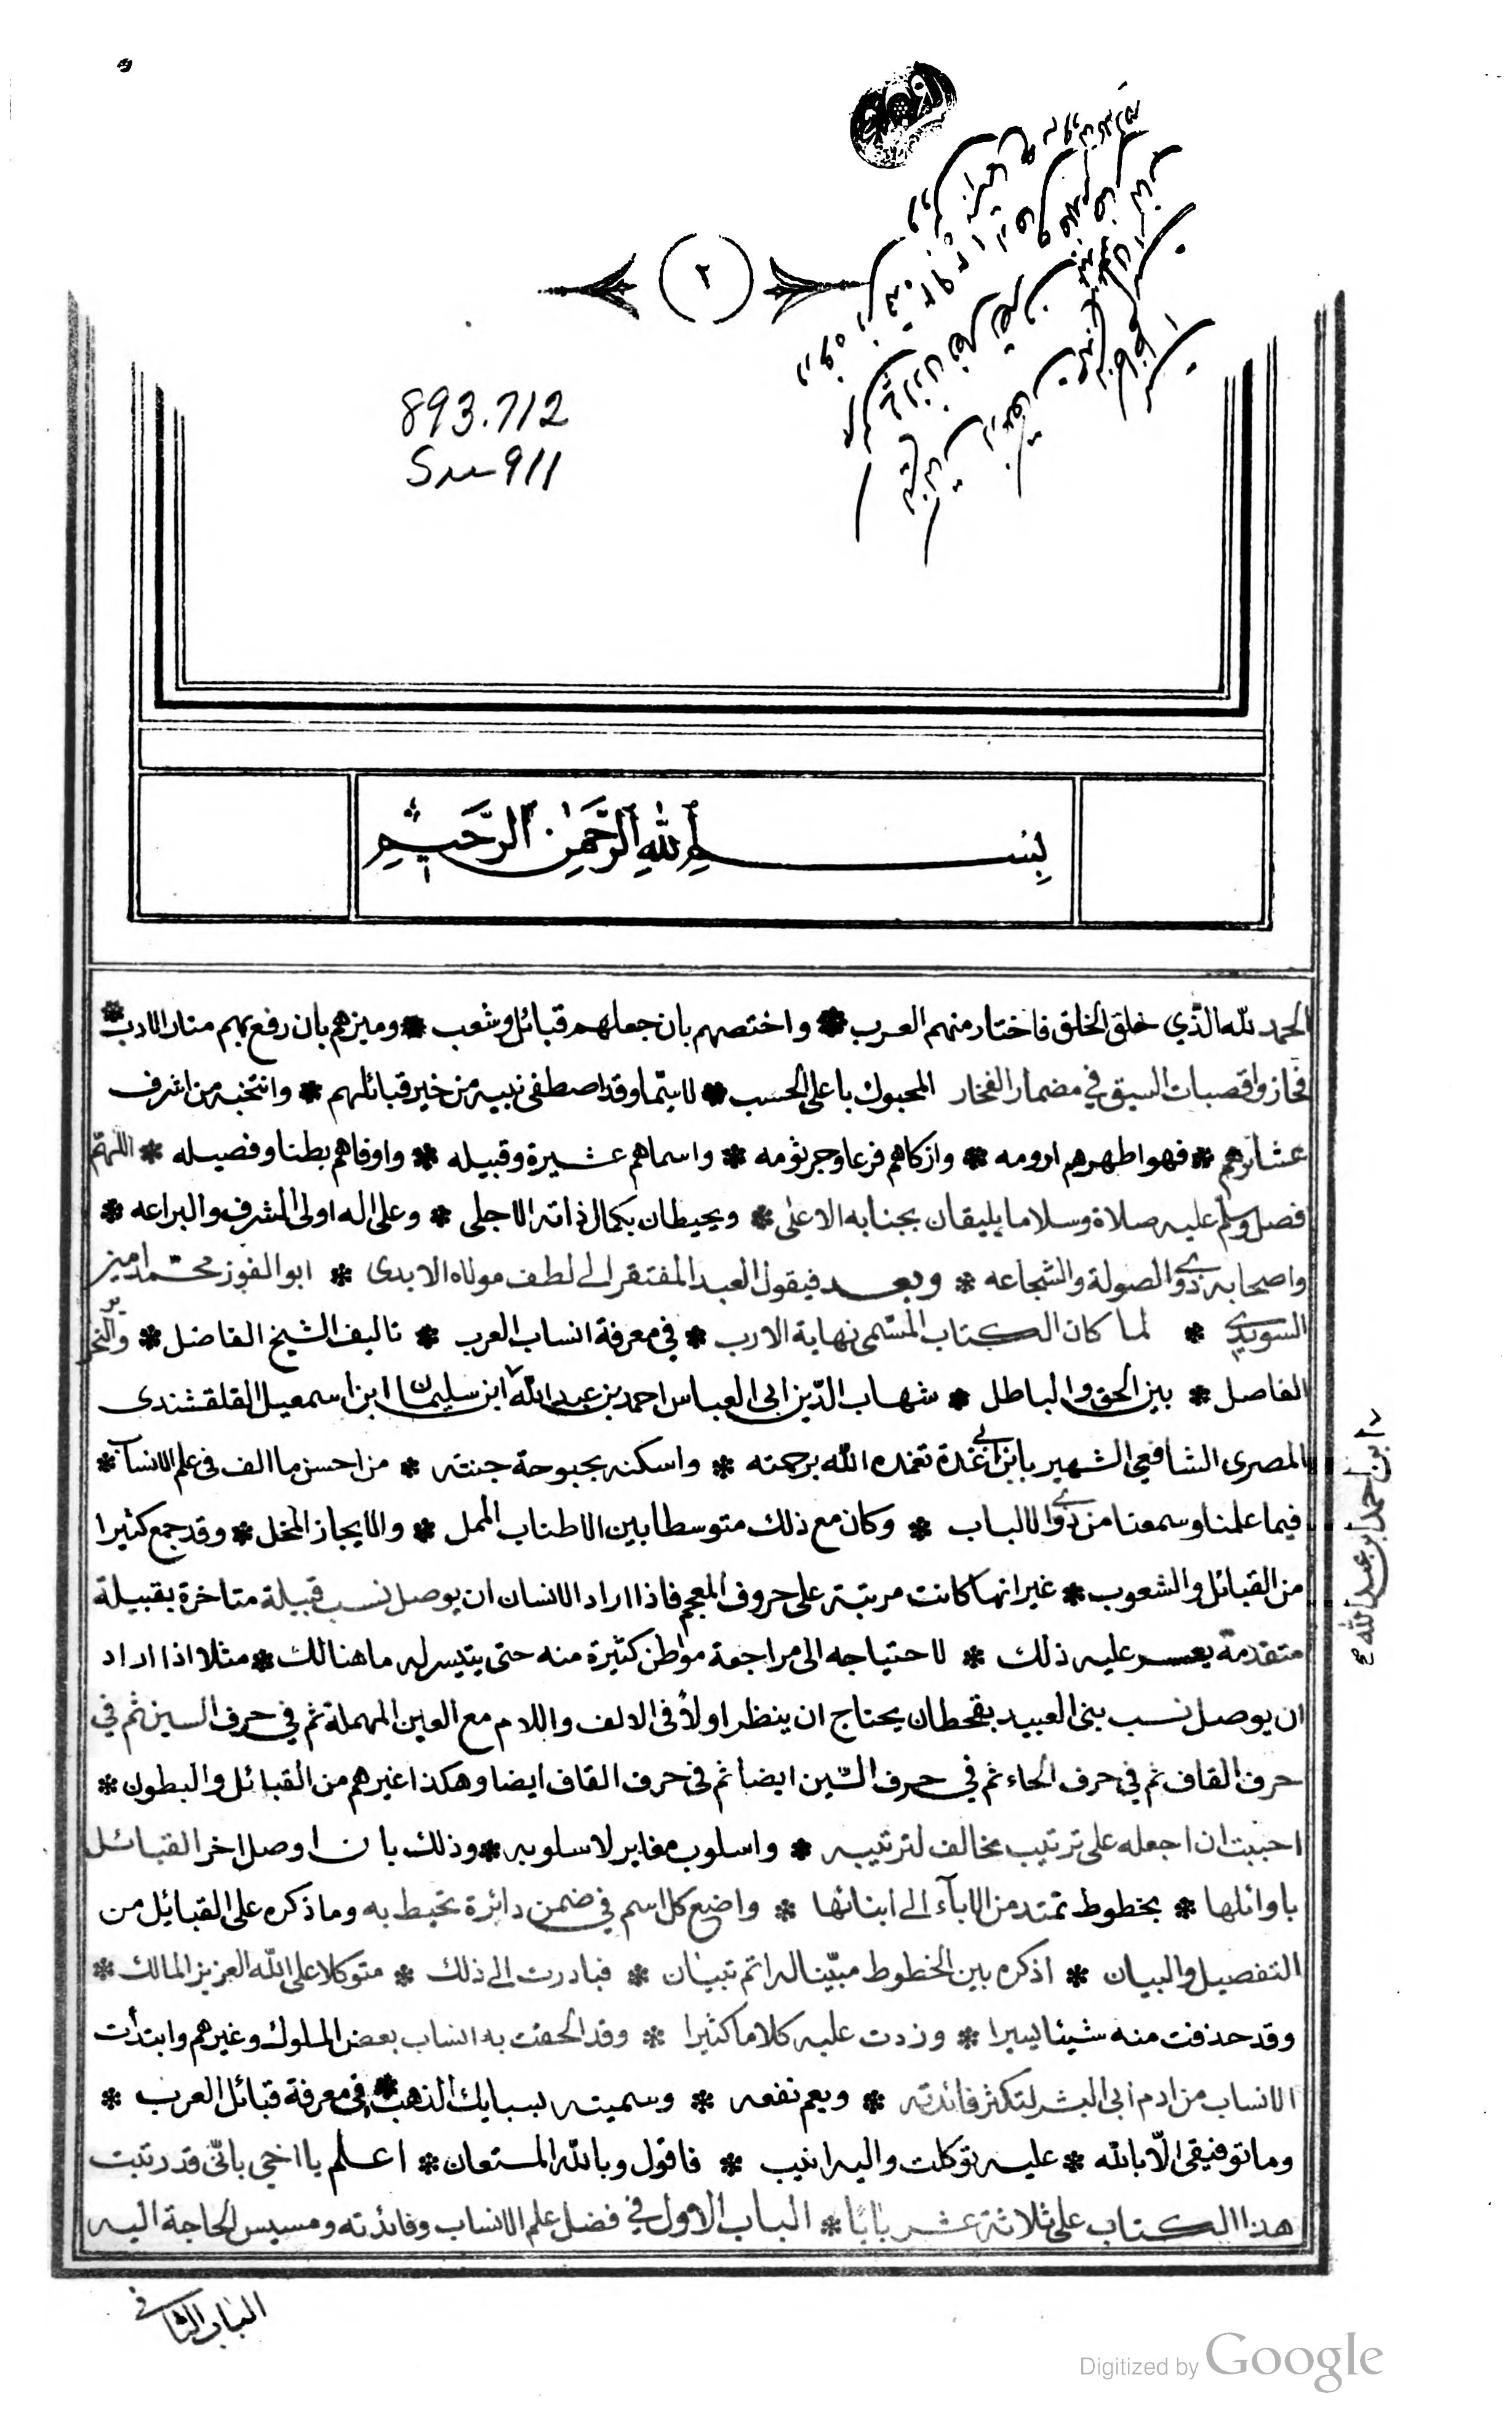 ٢
893.712
Su911
بسم الله الرحمن الرحيم
الحمد لله الذي خلق الخلق فاختار منهم العرب * واختصهم بان جعلهم قبائل وشعب * وميزهم بان رفع بهم منار الادب *
فحازوا قصبات السبق في مضمار الفخار المحبوك باعلى الحسب * لاسيّما وقد اصطفى نبيه من خير قبائلهم * وانتخبه من اشرف
عشائرهم * فهو اطهرهم ارومه * وازكاهم فرعا وجرثومه * واسماهم عشيرة وقبيله * واوفاهم بطنا وفصيله * اللهمّ
فصل وسلم عليه صلاة وسلاما يليقان بجنابه الاعلى * ويحيطان بكمال ذاته الاجلى * وعلى اله اولى الشرف والبراعه *
واصحابه ذوي الصولة والشجاعه * وبعد فيقول العبد المفتقر الى لطف مولاه الابدى * ابو الفوز محمّد امين
السويدي * لما كان الكتاب المسّمى نهاية الارب * في معرفة انساب العرب * تاليف الشيخ الفاضل * والنحرير
الفاصل * بين الحق والباطل * شهاب الدّين ابى العباس احمد بن عبد الله ابن سليمان ابن اسمعيل القلقشندى
المصرى الشافعي الشهير بابن ابي غدة تغمده الله برحمته * واسكنه بحبوحة جنته * من احسن ما الف فى علم الانساب *
فيما علمنا وسمعنا من ذوي الالباب * وكان مع ذلك متوسطا بين الاطناب الممل * والايجاز المخل * وقد جمع كثيرا
من القبائل والشعوب * غير انها كانت مرتبة على حروف المعجم فاذا اراد الانسان ان يوصل نسب قبيلة متاخرة بقبيلة
متقدمة يعسر عليه ذلك * لاحتياجه الى مراجعة مواطن كثيرة منه حتى يتيسر له ما هنالك * مثلا اذا اراد
ان يوصل نسب بنى العبيد بقحطان يحتاج ان ينظر اولاً فى الالف واللام مع العين المهملة ثم في حرف السين ثم في
حرف القاف ثم في حرف الحاء ثم في حرف الشين ايضا ثم في حرف القاف ايضا وهكذا غيرهم من القبائل والبطون *
احببت ان اجعله على ترتيب مخالف لترتيبه * واسلوب مغاير لاسلوبه * وذلك بان اوصل اخر القبائل
باوائلها * بخطوط تمتد من الاباء الى ابنائها * واضع كل اسم في ضمن دائرة تحيط به وما ذكره على القبايل من
التفصيل والبيان * اذكره بين الخطوط مبيّنا له اتم تبيان * فبادرت الى ذلك * متوكلا على الله العزيز المالك *
وقد حذفت منه شيئا يسيرا * وزدت عليه كلاما كثيرا * وقد الحقت به انساب بعض الملوك وغيرهم وابتدأت
الانساب من ادم أبى البشر لتكثر فائدته * ويعم نفعه * وسميته بسبايك الذهب * في معرفة قبائل العرب *
وما توفيقى الّا بالله * عليه توكلت واليه انيب * فاقول وبالله المستعان * اعلم يا اخى بانّى قد رتبت
هذا الكتاب على ثلاثة عشر بابًا * الباب الاول في فضل علم الانساب وفائدته ومسيس الحاجة اليه
ابن احمد ابن عبد الله
الباب الثاني
Digitized by Google